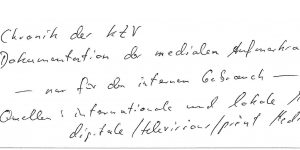 Chronik der KZV
Dokumentation der medialen
— nur für den internen Gebrauch —
Quellen: internationale und lokale
digitale/televisions/print Med